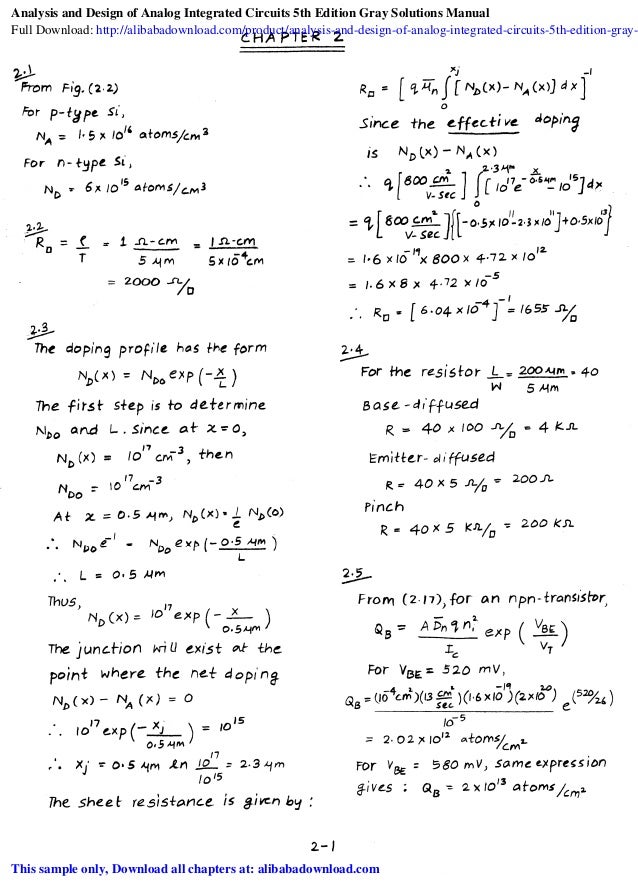 Analysis and Design of Analog Integrated Circuits 5th Edition Gray Solutions Manual
Full Download: http://alibabadownload.com/product/analysis-and-design-of-analog-integrated-circuits-5th-edition-gray-
CHAPTER 2
2.1
From Fig.(2.2)
For p-type Si,
N_A = 1.5 × 10^16 atoms/cm^3
For n-type Si,
N_D = 6×10^15 atoms/cm^3
2.2
R_□ = ρ/T = 1 Ω-cm / 5 μm = 1Ω-cm / 5×10^-4 cm
= 2000 Ω/□
2.3
The doping profile has the form
N_D(x) = N_DO exp(-x/L)
The first step is to determine
N_DO and L. Since at x=0,
N_D(x) = 10^17 cm^-3, then
N_DO = 10^17 cm^-3
At x = 0.5 μm, N_D(x) = 1/e N_D(0)
∴ N_DO e^-1 = N_DO exp(-0.5 μm / L)
∴ L = 0.5 μm
Thus,
N_D(x) = 10^17 exp(-x / 0.5μm)
The junction will exist at the
point where the net doping
N_D(x) - N_A(x) = 0
∴ 10^17 exp(-x_j / 0.5μm) = 10^15
∴ x_j = 0.5 μm ln 10^17/10^15 = 2.3 μm
The sheet resistance is given by :
R_□ = [q μ̄_n ∫_0^xj [N_D(x) - N_A(x)] dx]^-1
Since the effective doping
is N_D(x) - N_A(x)
∴ q[800 cm^2/V-sec] ∫_0^2.3μm [10^17 e^(-x/0.5μm) - 10^15] dx
= q[800 cm^2/V-sec]{[-0.5×10^11 - 2.3×10^11] + 0.5×10^13}
= 1.6 × 10^-19 × 800 × 4.72 × 10^12
= 1.6 × 8 × 4.72 × 10^-5
∴ R_□ = [6.04 × 10^-4]^-1 = 1655 Ω/□
2.4
For the resistor L/W = 200 μm / 5 μm = 40
Base-diffused
R = 40 × 100 Ω/□ = 4 KΩ
Emitter-diffused
R = 40×5 Ω/□ = 200Ω
Pinch
R = 40×5 KΩ/□ = 200 KΩ
2.5
From (2.17), for an npn-transistor,
Q_B = A D̄_n q n_i^2 / I_C exp (V_BE / V_T)
For V_BE = 520 mV,
Q_B = (10^-4 cm^2)(13 cm^2/sec)(1.6×10^-19)(2×10^20) / 10^-5 e^(520/26)
= 2.02×10^12 atoms/cm^2
For V_BE = 580 mV, same expression
gives : Q_B = 2×10^13 atoms/cm^2
2-1
This sample only, Download all chapters at: alibabadownload.com